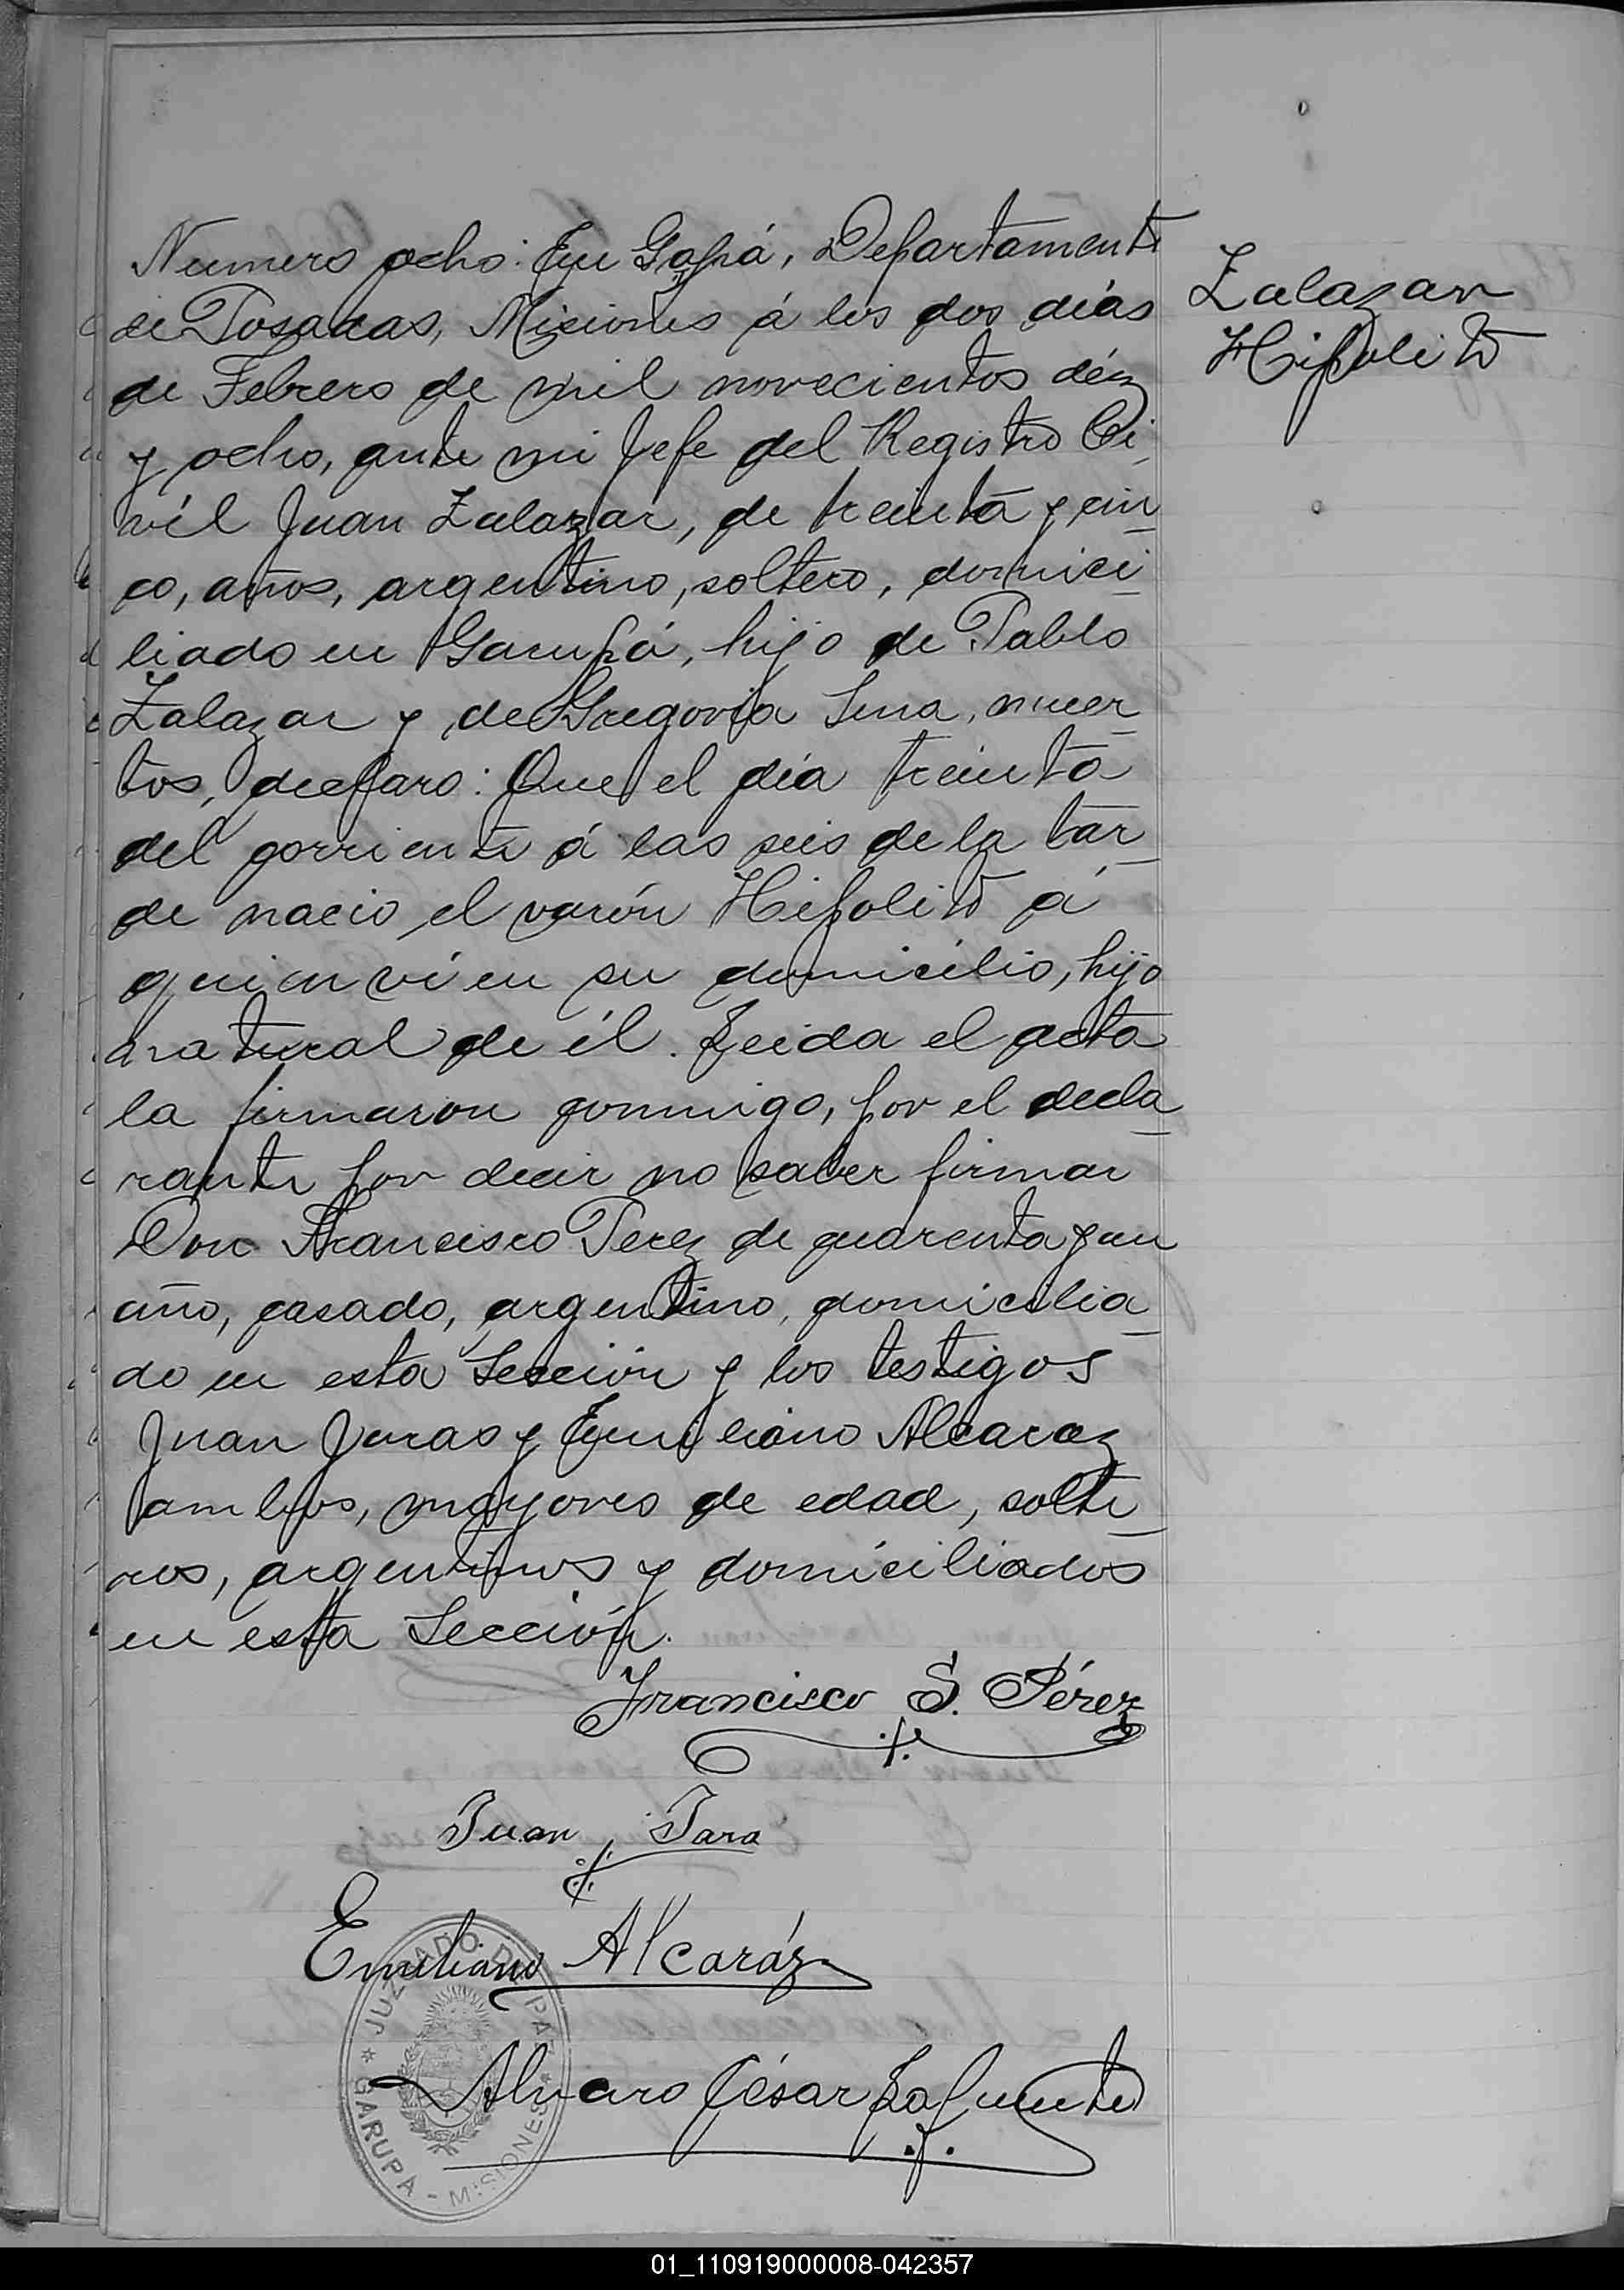 Numero ocho: En Gapá, Departamento
ru
de Posadas, Misiones á los dos días
de Febrero de mil novecientos diéz
y ocho, ante mi Jefe del Registro Ci
vil Juan Zalazar, de treinta y cin
co, años, argentino, soltero, domici
liado en Garupá, hijo de Pablo
Zalazar y de Gregoria Sena, muer
tos, declaro: Que el día treinta
del corriente á las seis de la tar
de nacio el varón Hipolito á
quien ví en su domicílio, hijo
natural de él. Leida el acta
la firmaron conmigo, por el decla
rante por decir no saber firmar
Don Francisco Perez de cuarenta y un
año, casado, argentino, domicilia
do en esta Sección y los testigos
Juan Jaras y Emiliano Alcaraz
ambos, mayores de edad, solte
ros, argentinos y domiciliados
en esta Sección.
Francisco S. Pérez
Juan Jara
Emiliano Alcaráz
Alvaro César Lafuente
Zalazar
Hipolito
JUZGADO DE PAZ
GARUPÁ - MISIONES
01_110919000008-042357